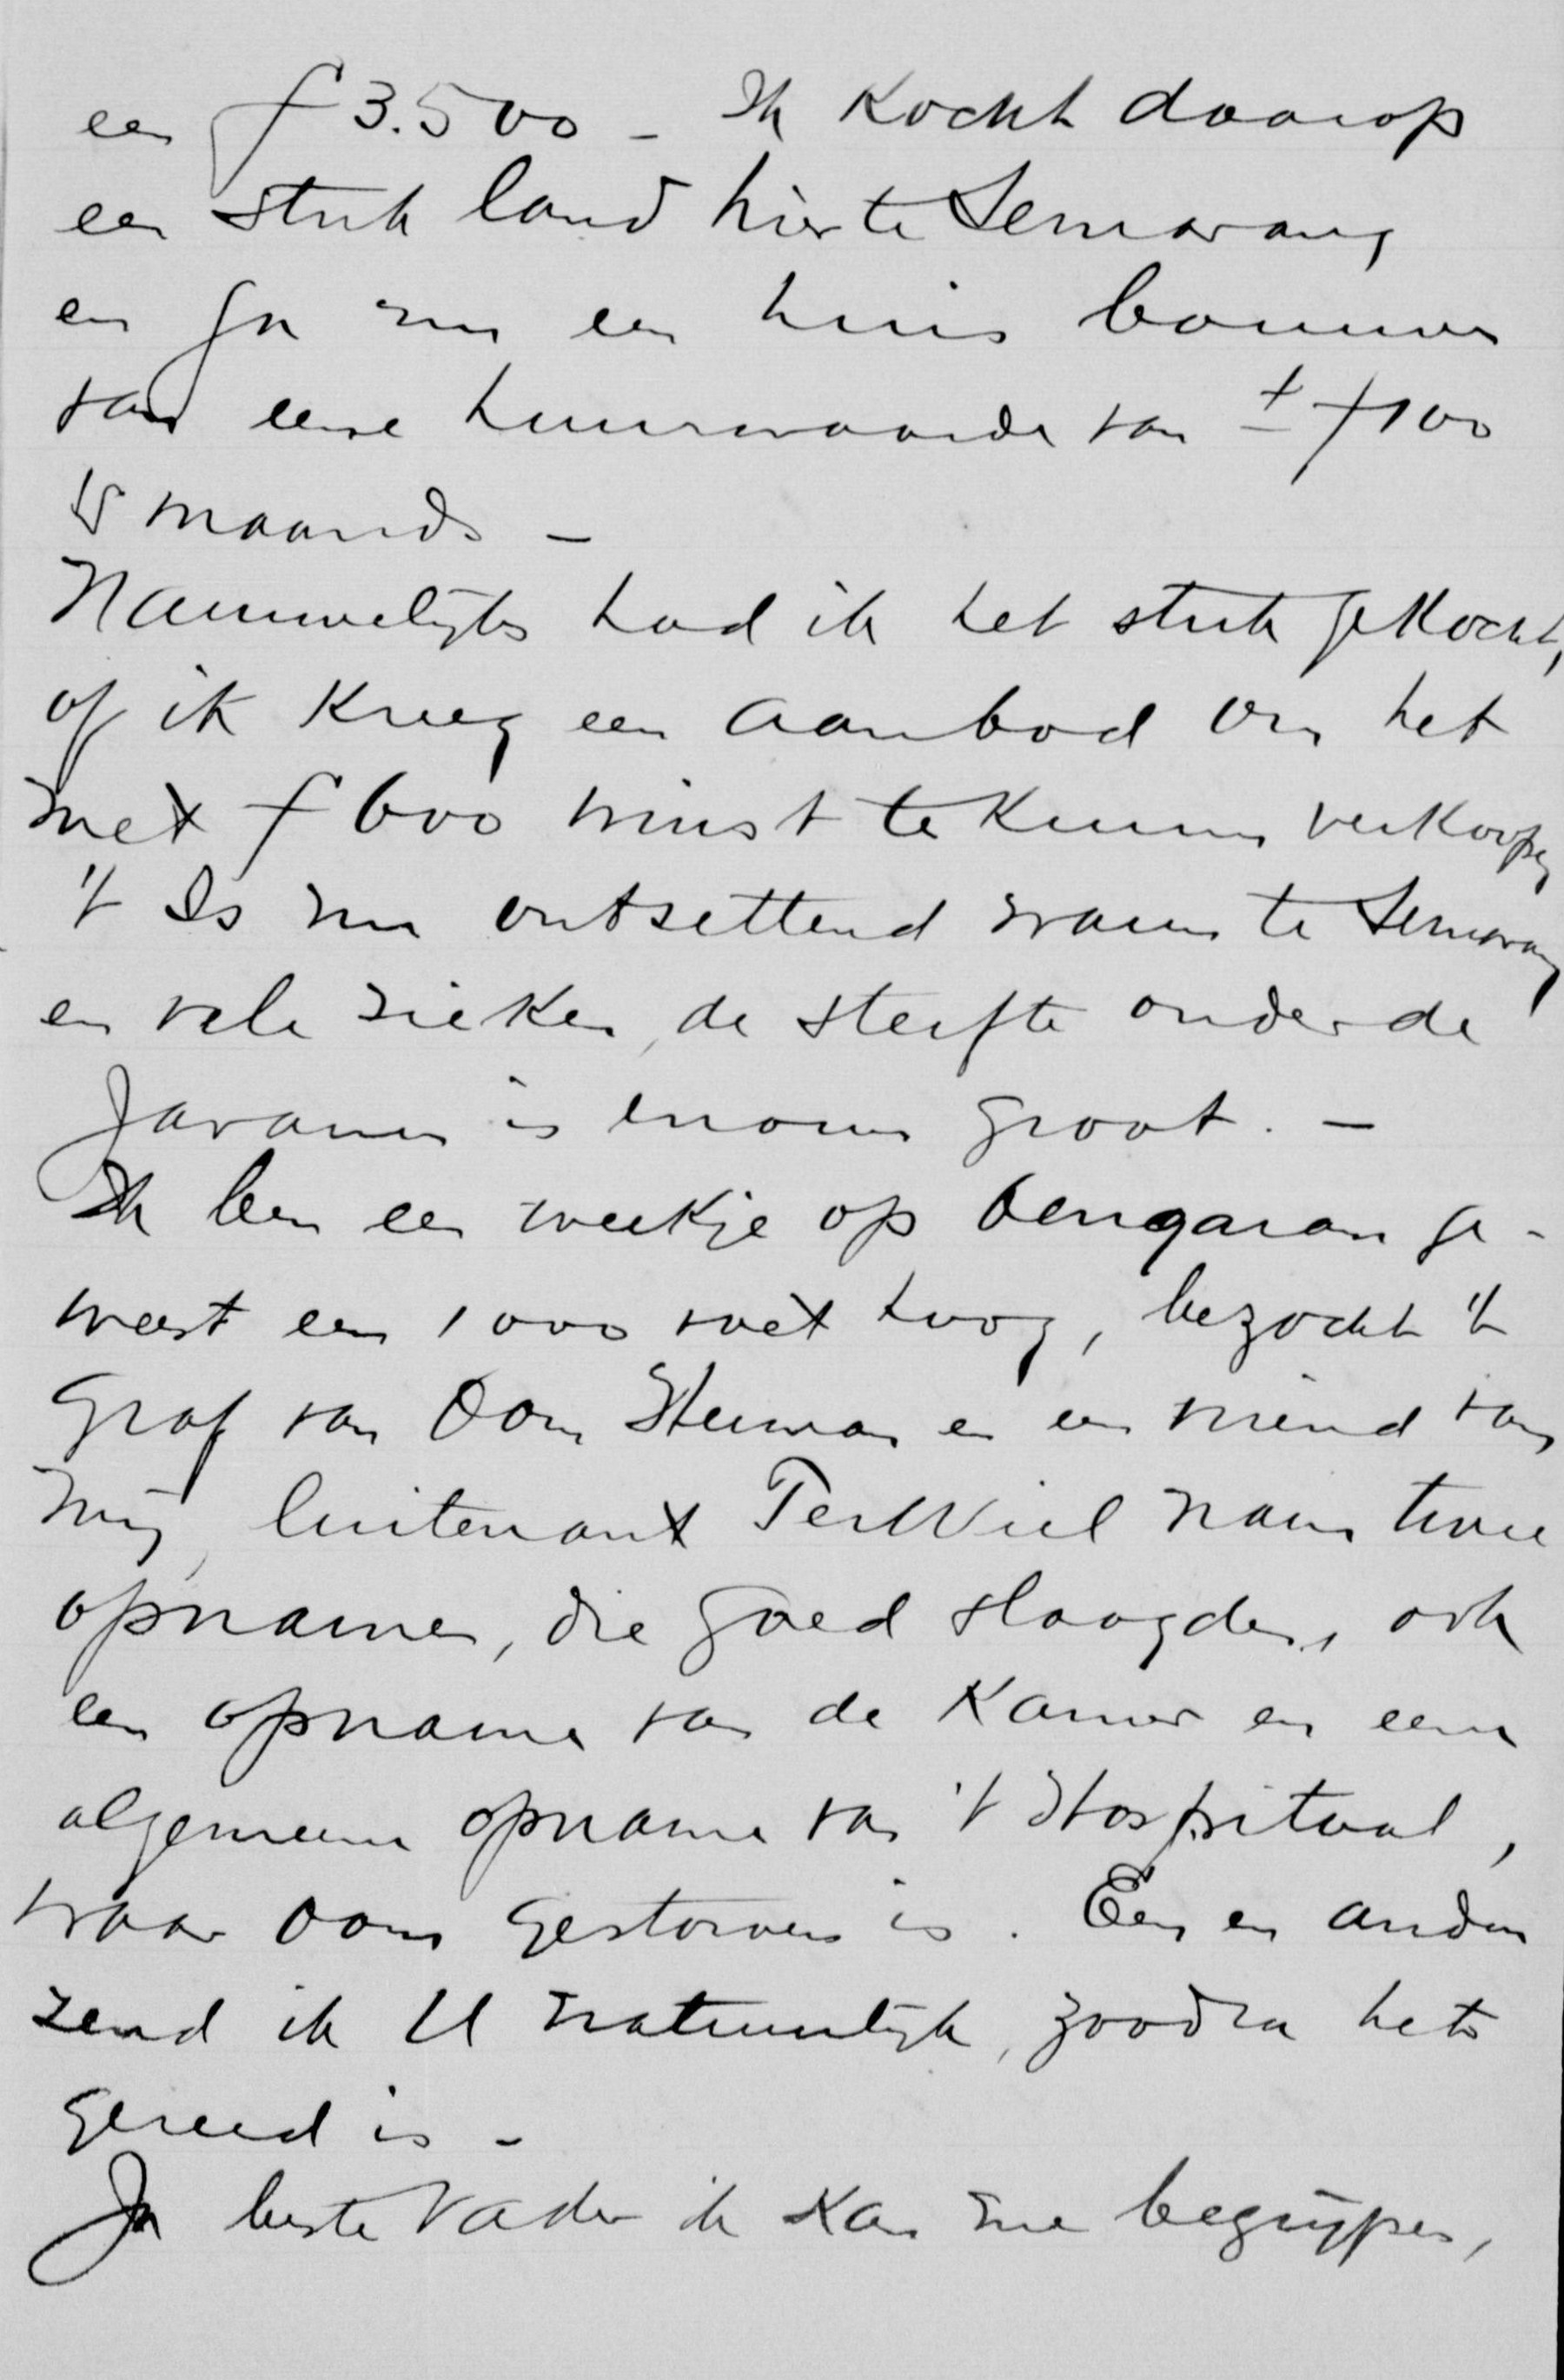 een f 3.500 - Ik kocht daarop
een stuk land hier te Semarang
en ga nu een huis bouwen
van eene huurwaarde van ± f 100
's maands -
Nauwelijks had ik het stuk gekocht,
of ik kreeg een aanbod om het
met f 600 winst te kunnen verkoopen
't Is nu ontzettend warm te Semarang
en vele zieken, de sterfte onder de
Javanen is enorm groot. -
Ik ben een weekje op Oengaran ge-
weest een 1000 voet hoog, bezocht 't
Graf van Oom Herman en een vriend van
mij, luitenant Ter Wiel nam twee
opnamen, die goed slaagden, ook
een opname van de Kamer en eene
algemeene opname van 't Hospitaal,
waar oom gestorven is. Een en ander
zend ik U natuurlijk, zoodra het
gereed is -
Ja beste Vader ik kan me begrijpen,